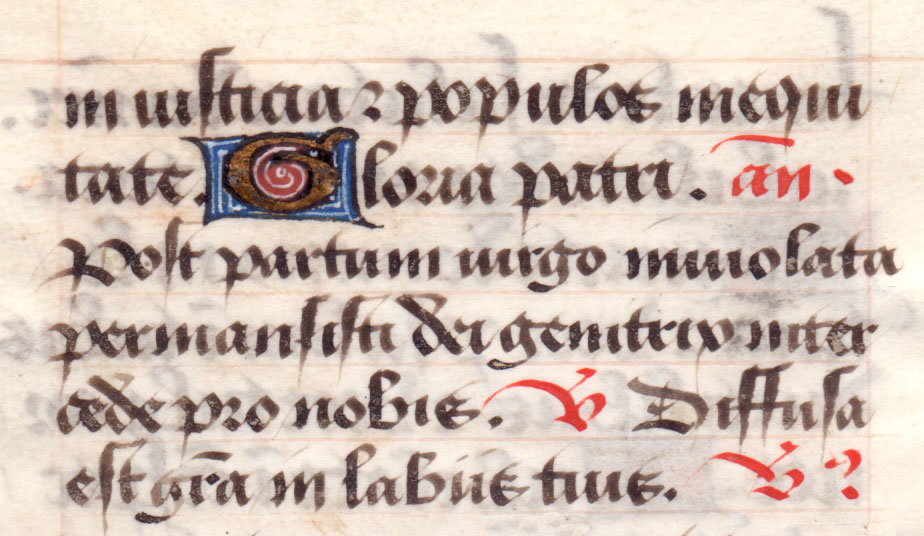 in iusticia ⁊ populos in equi
tate. Gloria patri. añ.
Post partum uirgo inuiolata
permansisti dei genitrix inter
cede pro nobis. ℣ Diffusa
est gr̃a in labiis tuis. ℣?